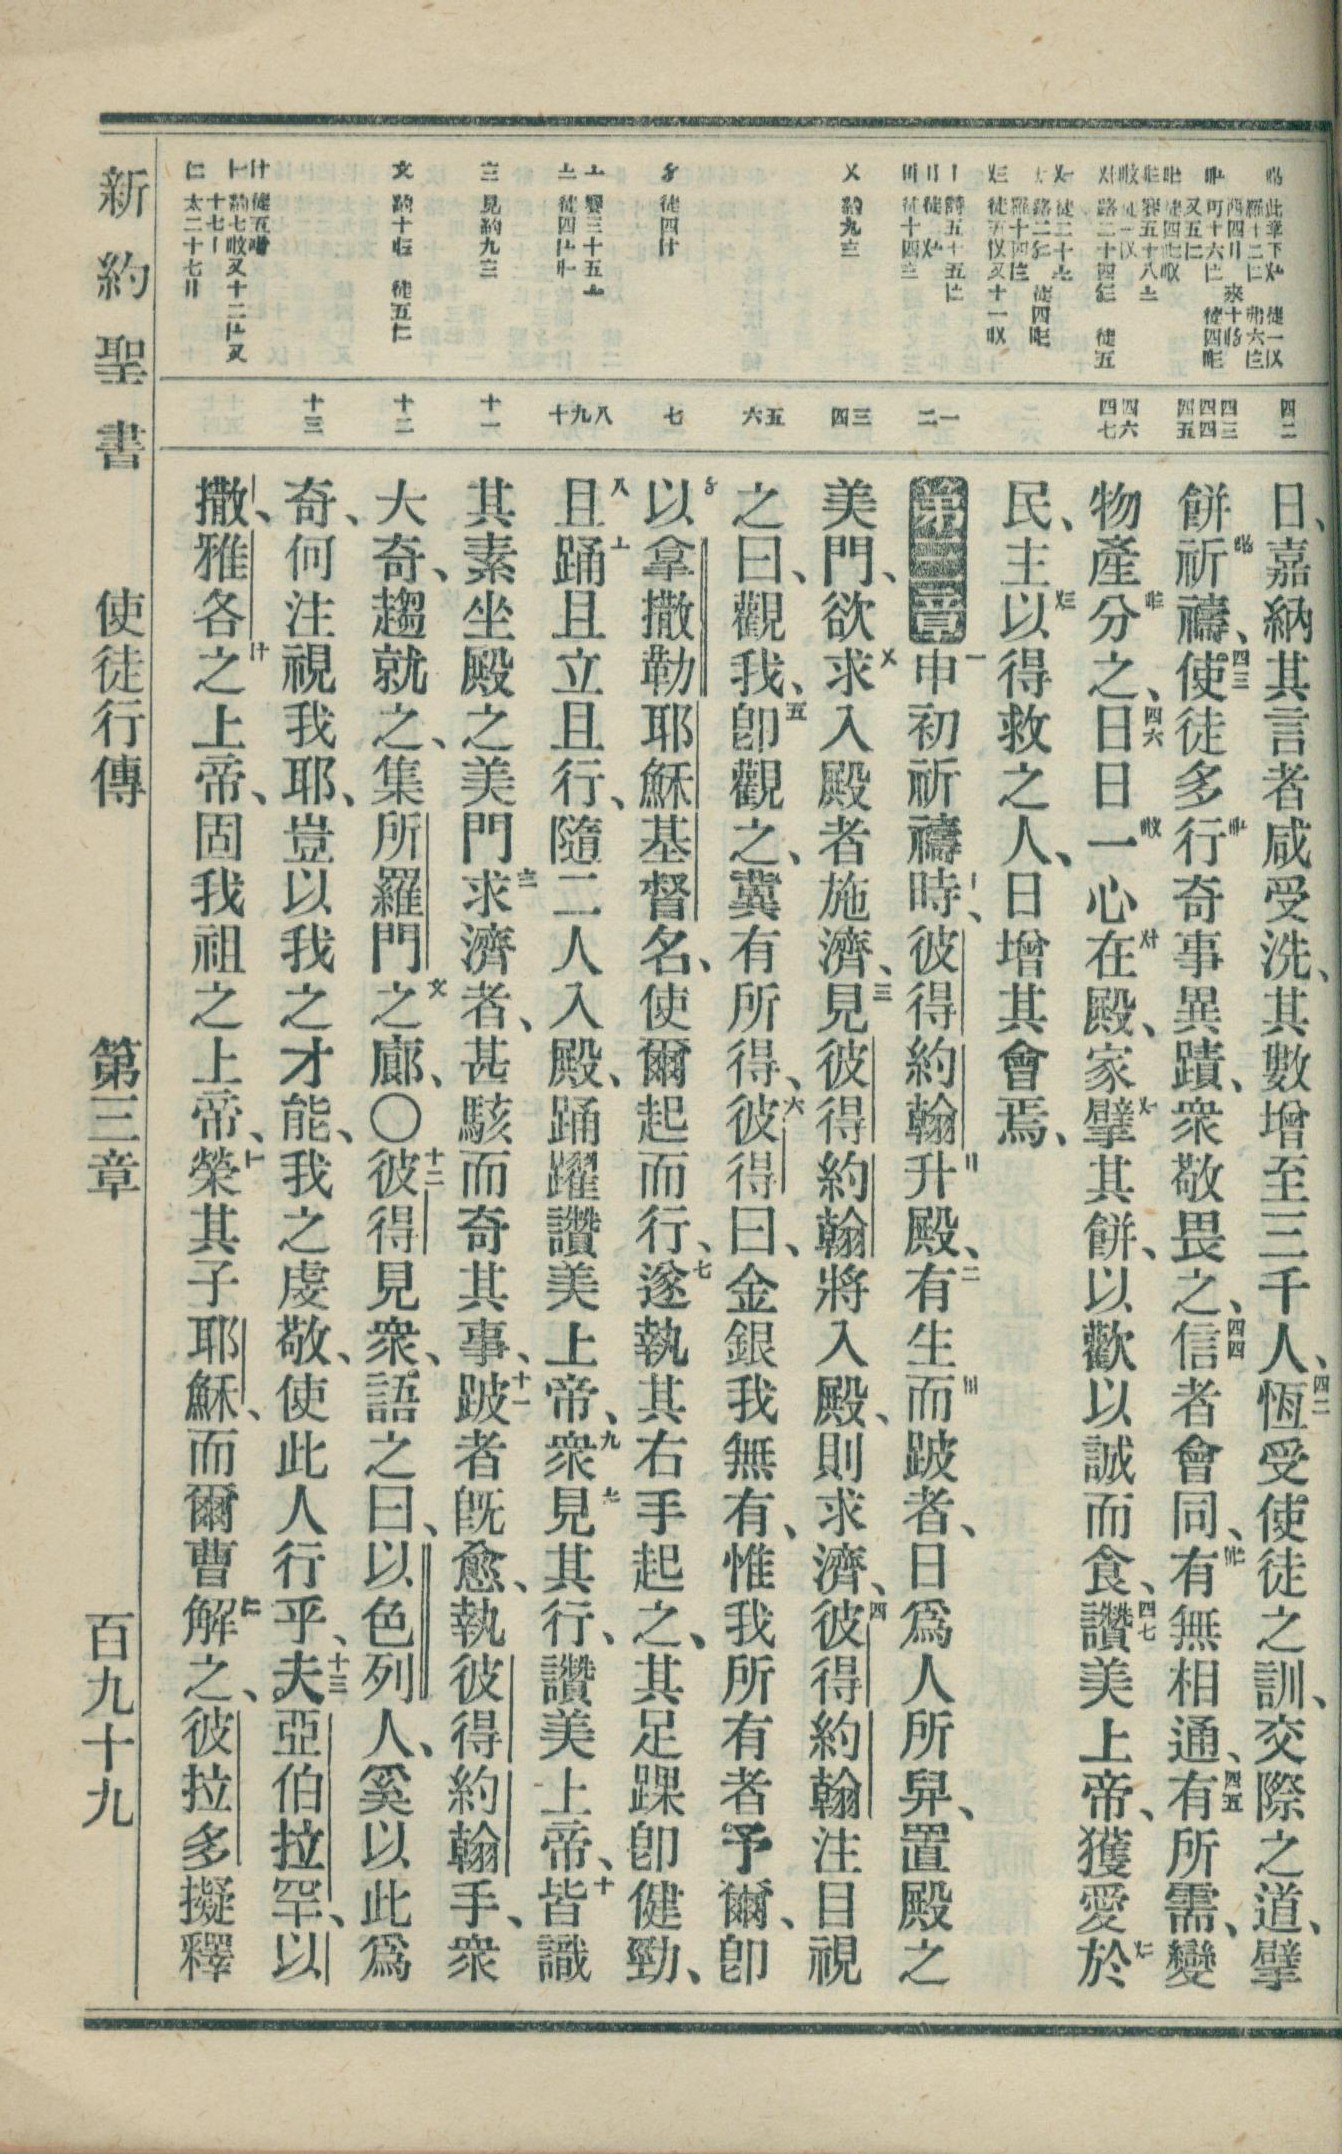 日、嘉納其言者咸受洗、其數增至三千人、四二恆受使徒之訓、交際之道、擘
餅祈禱、四三使徒多行奇事異蹟、衆敬畏之、四四信者會同、有無相通、四五有所需、變
物產分之、四六日日一心在殿、家擘其餅、以歡以誠而食、四七讚美上帝、獲愛於
民、主以得救之人、日增其會焉、
第三章 一申初祈禱時、彼得約翰升殿、二有生而跛者、日爲人所舁、置殿之
美門、欲求入殿者施濟、三見彼得約翰將入殿、則求濟、四彼得約翰注目視
之曰、觀我、五卽觀之、冀有所得、六彼得曰、金銀我無有、惟我所有者予爾、卽
以拿撒勒耶穌基督名、使爾起而行、七遂執其右手起之、其足踝卽健勁、
八且踊且立且行、隨二人入殿、踊躍讚美上帝、九衆見其行、讚美上帝、十皆識
其素坐殿之美門求濟者、甚駭而奇其事、十一跛者旣愈、執彼得約翰手、衆
大奇、趨就之、集所羅門之廊、〇十二彼得見衆、語之曰、以色列人、奚以此爲
奇、何注視我耶、豈以我之才能、我之虔敬、使此人行乎、十三夫亞伯拉罕、以
撒、雅各之上帝、固我祖之上帝、榮其子耶穌、而爾曹解之、彼拉多擬釋
新約聖書 使徒行傳 第三章 百九十九
四二
四三
四四
四五
四六
四七
一
二
三
四
五
六
七
八
九
十
十一
十二
十三